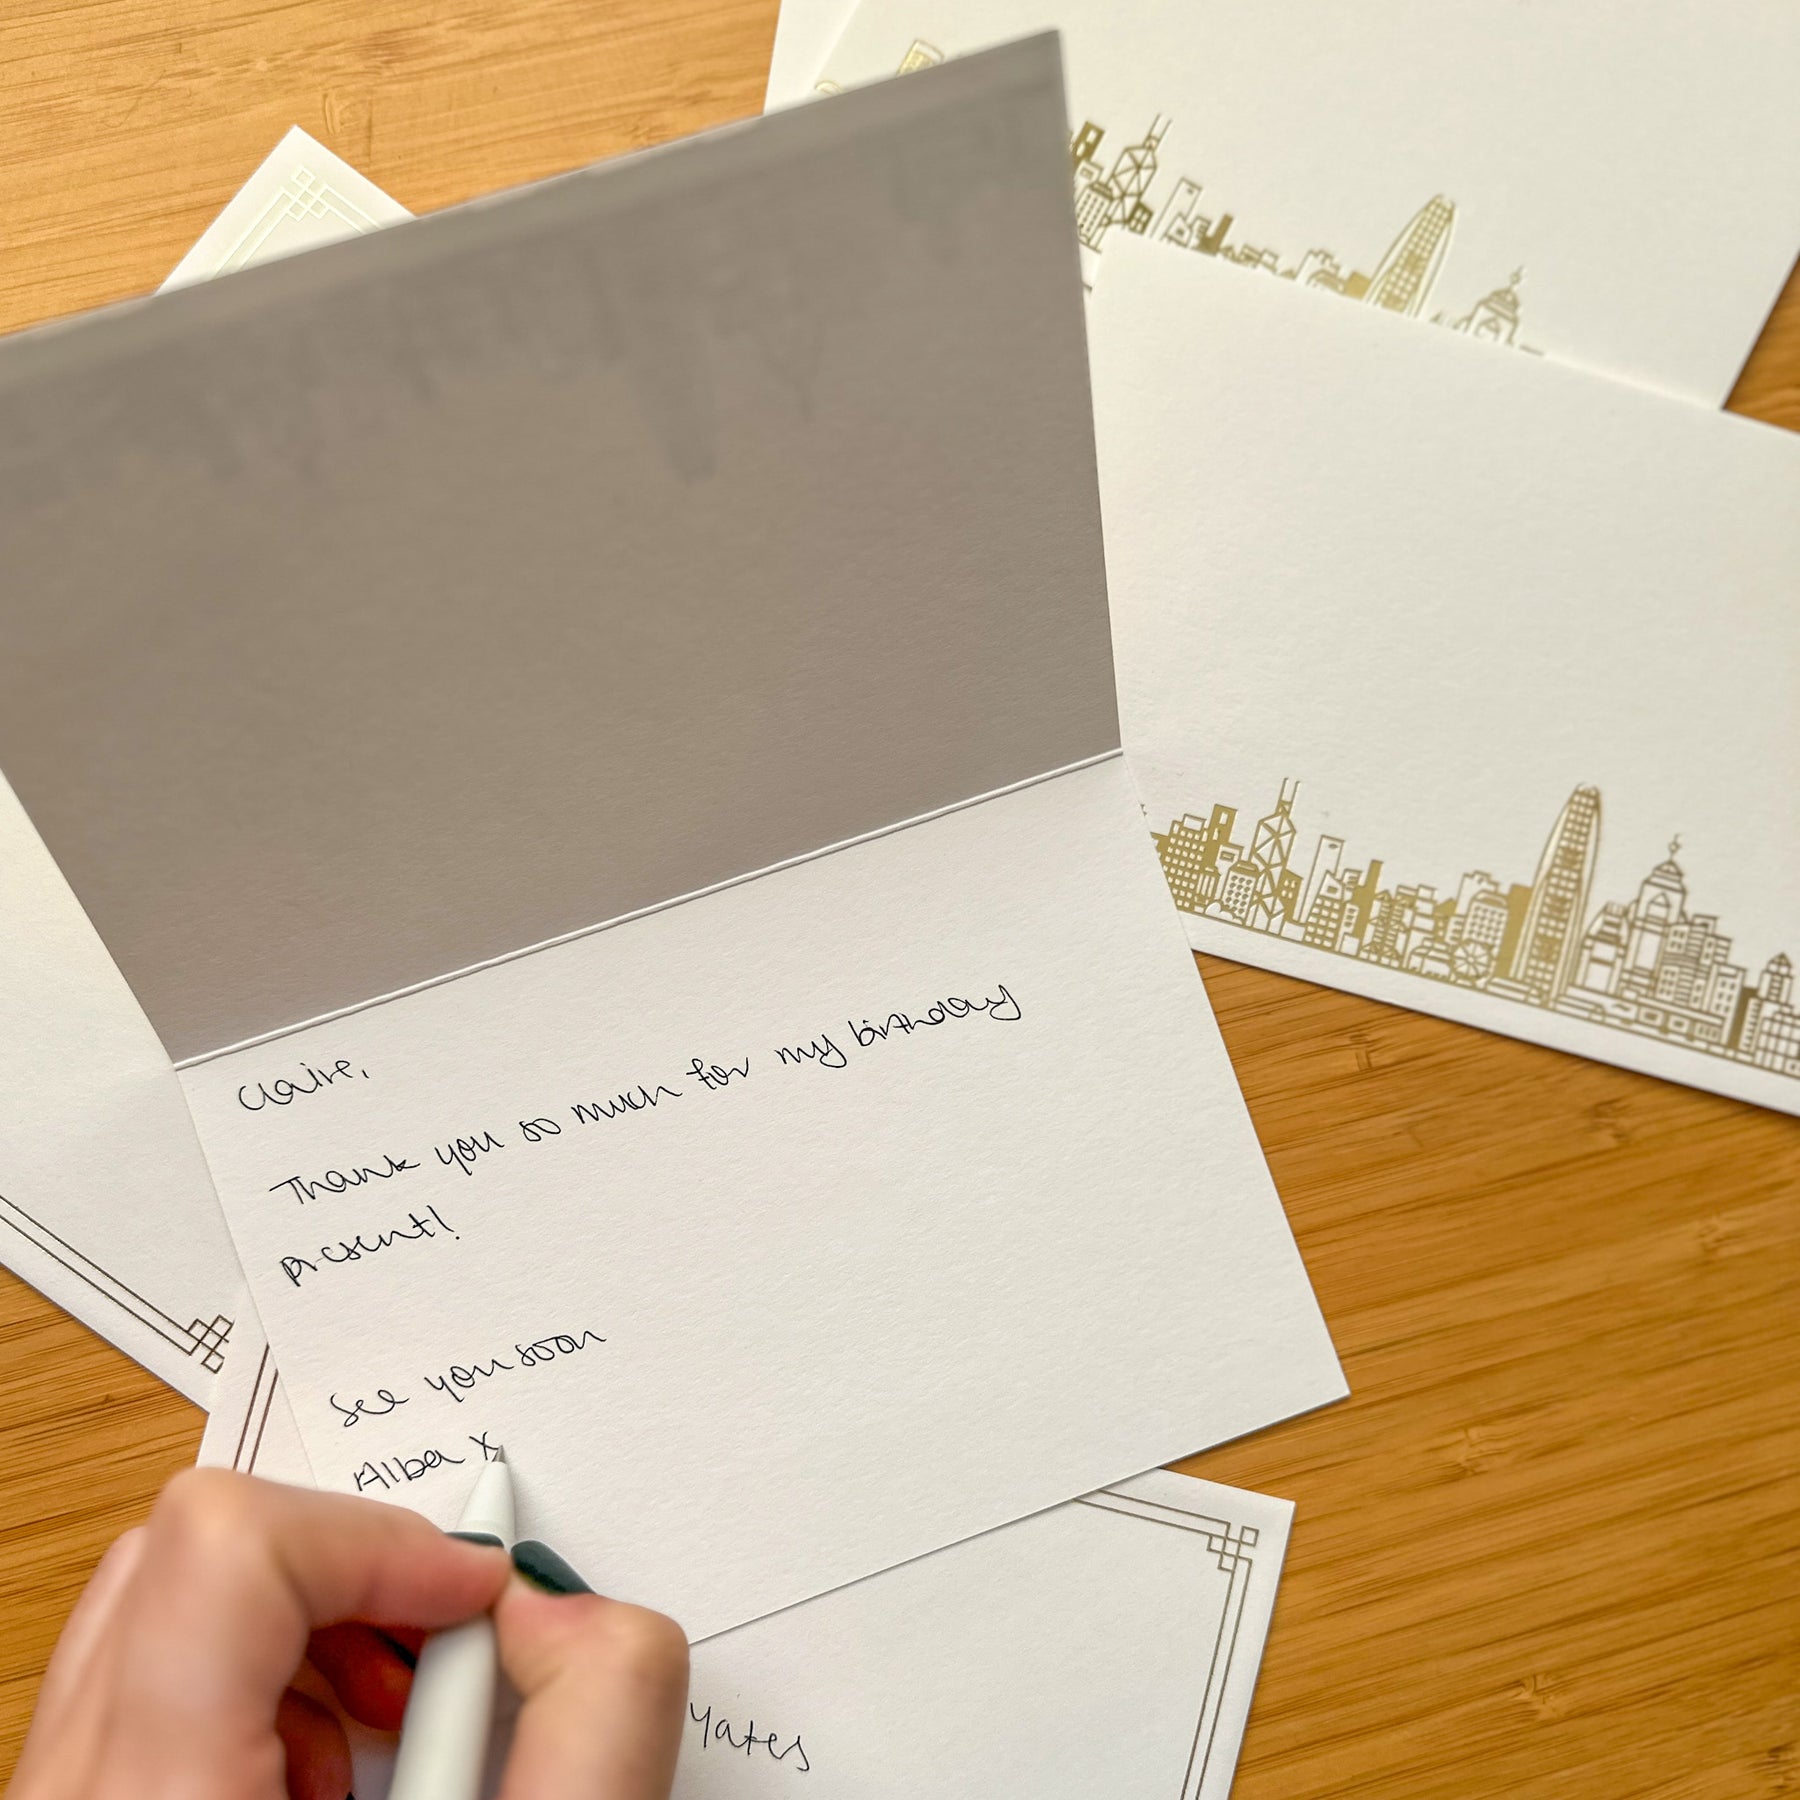 Claire,
Thank you so much for my birthday
present!
See you soon
Alba x
Yates